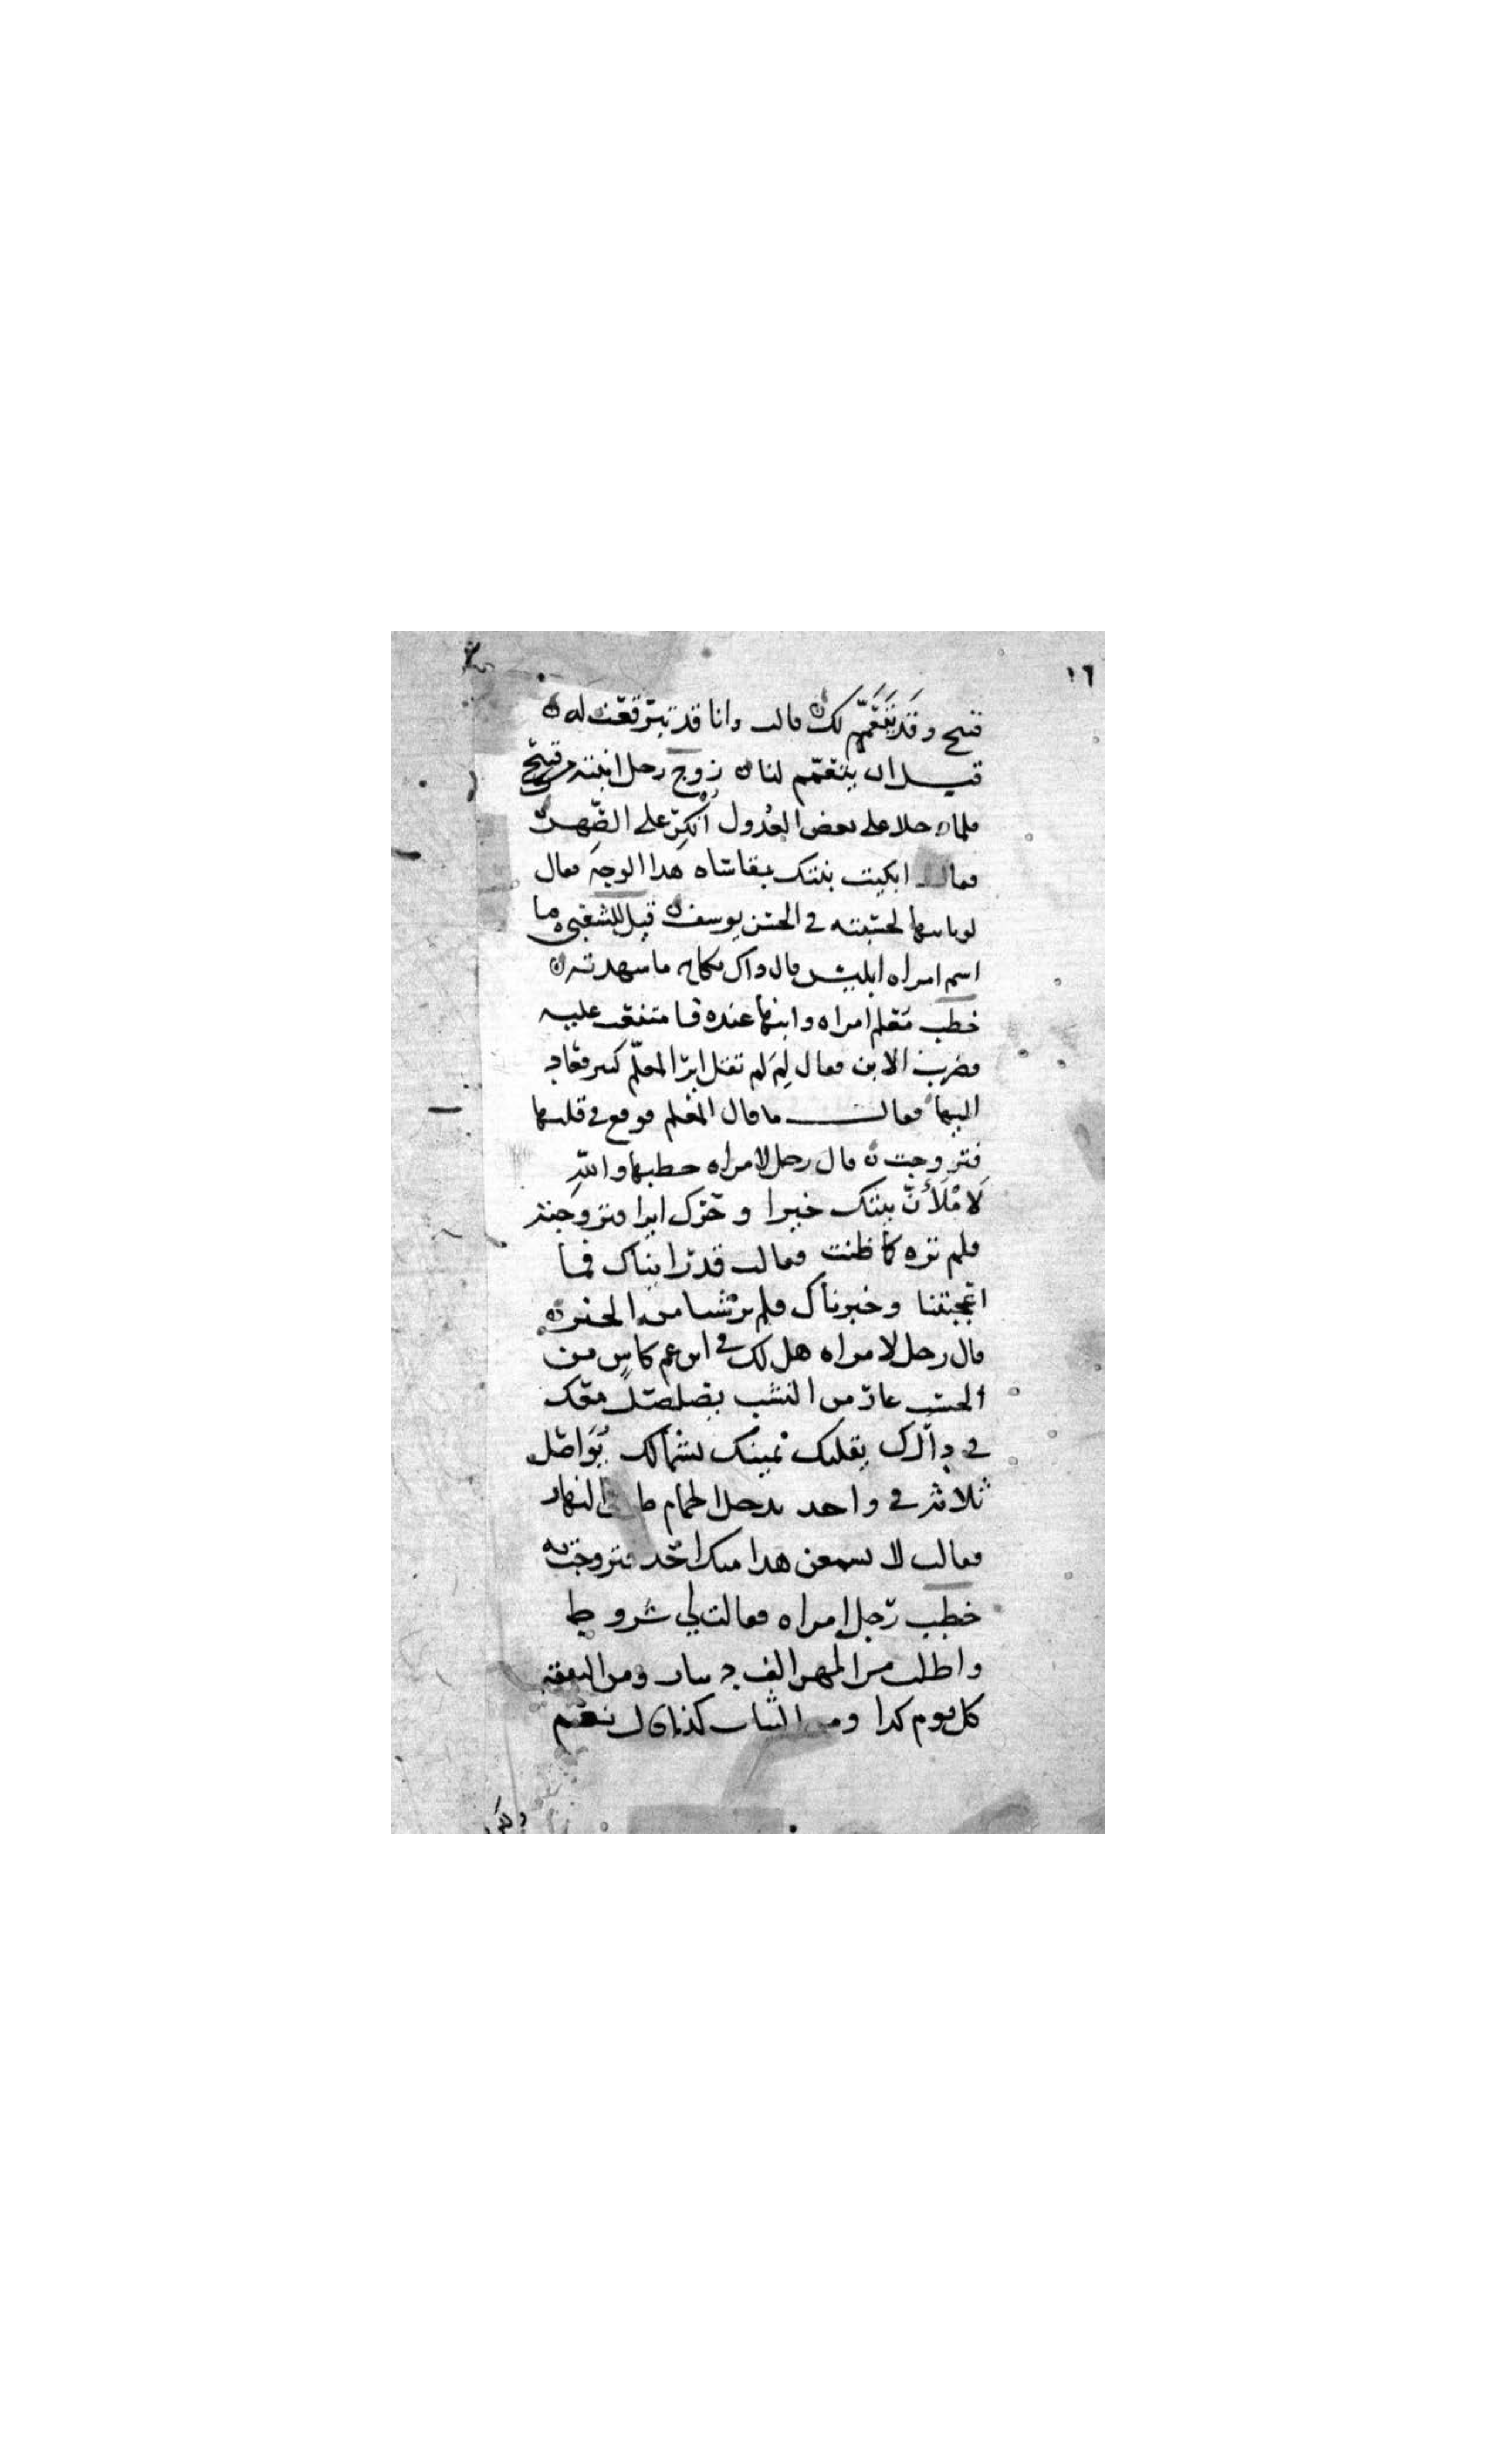 ١٦
قبيح وقد تعمم لك قالت وانا قد تبرقعت له
قبل ان يتعمم لنا زوج رجل ابنته من قبيح
فلما دخلا على بعض العدول أنكر على الصهر
فقال ابكيت بنتك بمقاساه هذا الوجه فقال
لو باسها لحسبته في الحسن يوسف قيل للشعبي ما
اسم امراه ابليس قال ذاك نكاح ما شهدته
خطب معلم امراه وابنها عنده فامتنعت عليه
فضرب الابن فقال لم لم تقل اير المعلم كبير فعاد
اليها فقالت ما قال المعلم فوقع في قلبها
فتزوجت قال رجل لامراه خطبها والله
لاملأن بيتك خيرا وحرك ايرا فتزوجته
فلم تره كما ظنت فقالت قد رايناك فما
اعجبتنا وخبرناك فلم نر شيا من الخبر
قال رجل لامراه هل لك في ابن عم كاس من
الحسب عار من النشب يتصلصل معك
في دارك يقلبك يمينك شمالك يواصل
ثلاثه في واحد يدخل الحمام طرفي النهار
فقالت لا يسمعن هذا منك احد فتزوجته
خطب رجل امراه فقالت لي شروط
واطلب من المهر الف دينار ومن النفقه
كل يوم كذا ومن الثياب كذا قال نعم